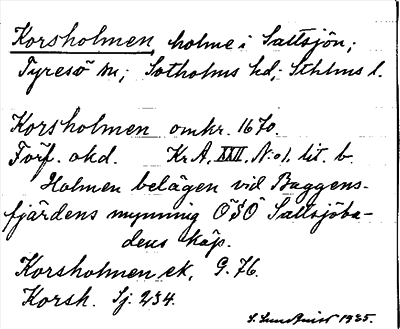 Korsholmen, holme i Saltsjön;
Tyresö sn; Sotholms hd; Sthlms l.
Korsholmen omkr. 1670
Förf. okd. Kr A, XXII, N:o 1, lit. b.
Holmen belägen vid Baggens-
fjärdens mynning ÖSÖ Saltsjöba-
dens köp.
Korsholmen ek. G. 76.
Korsh. Sj. 234.
S. Lundqvist 1935.